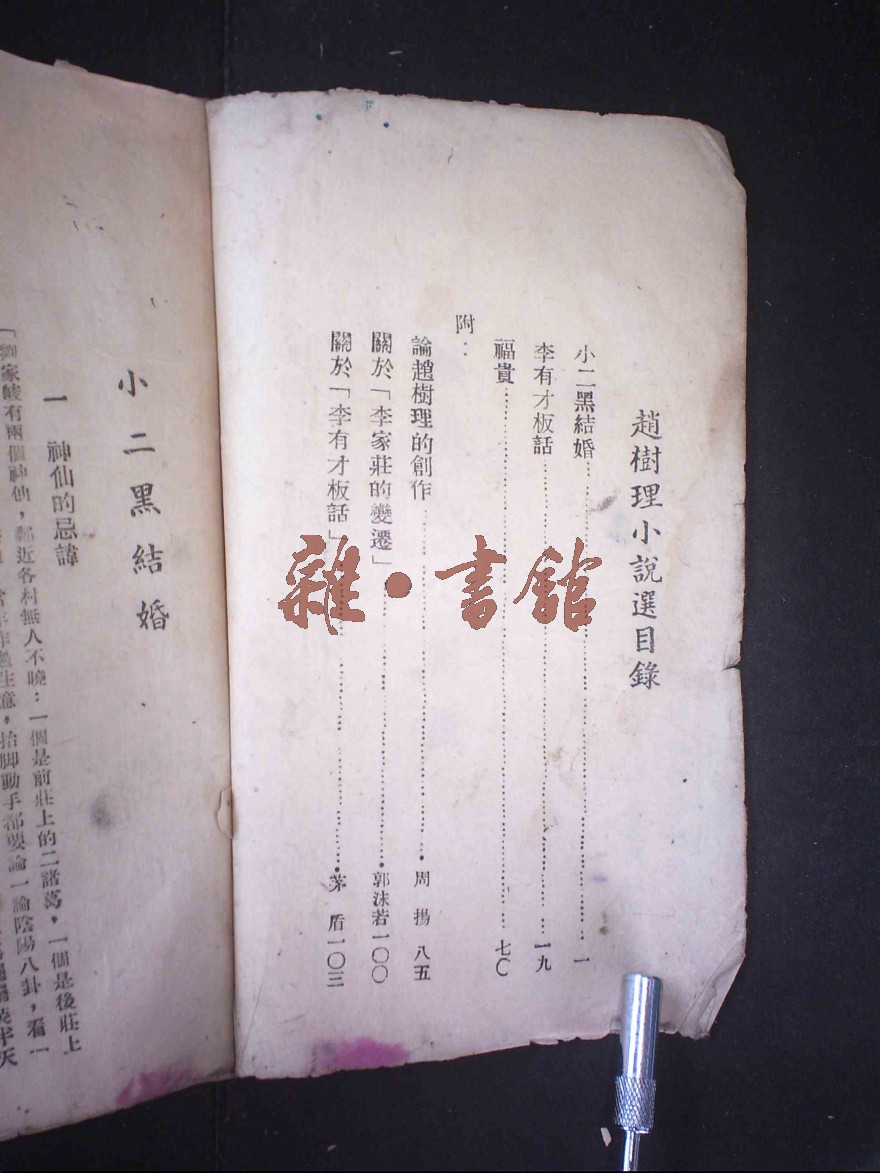 趙樹理小說選目錄
小二黑結婚……一
李有才板話……一九
福貴……七〇
附：
論趙樹理的創作……周揚 八五
關於「李家莊的變遷」……郭沫若 一〇〇
關於「李有才板話」……茅盾 一〇三
小二黑結婚
一 神仙的忌諱
「劉家峧有兩個神仙，鄰近各村無人不曉：一個是前莊上的二諸葛，一個是後莊上
作過生意，抬脚動手都要論一論陰陽八卦，看一
雜·書館